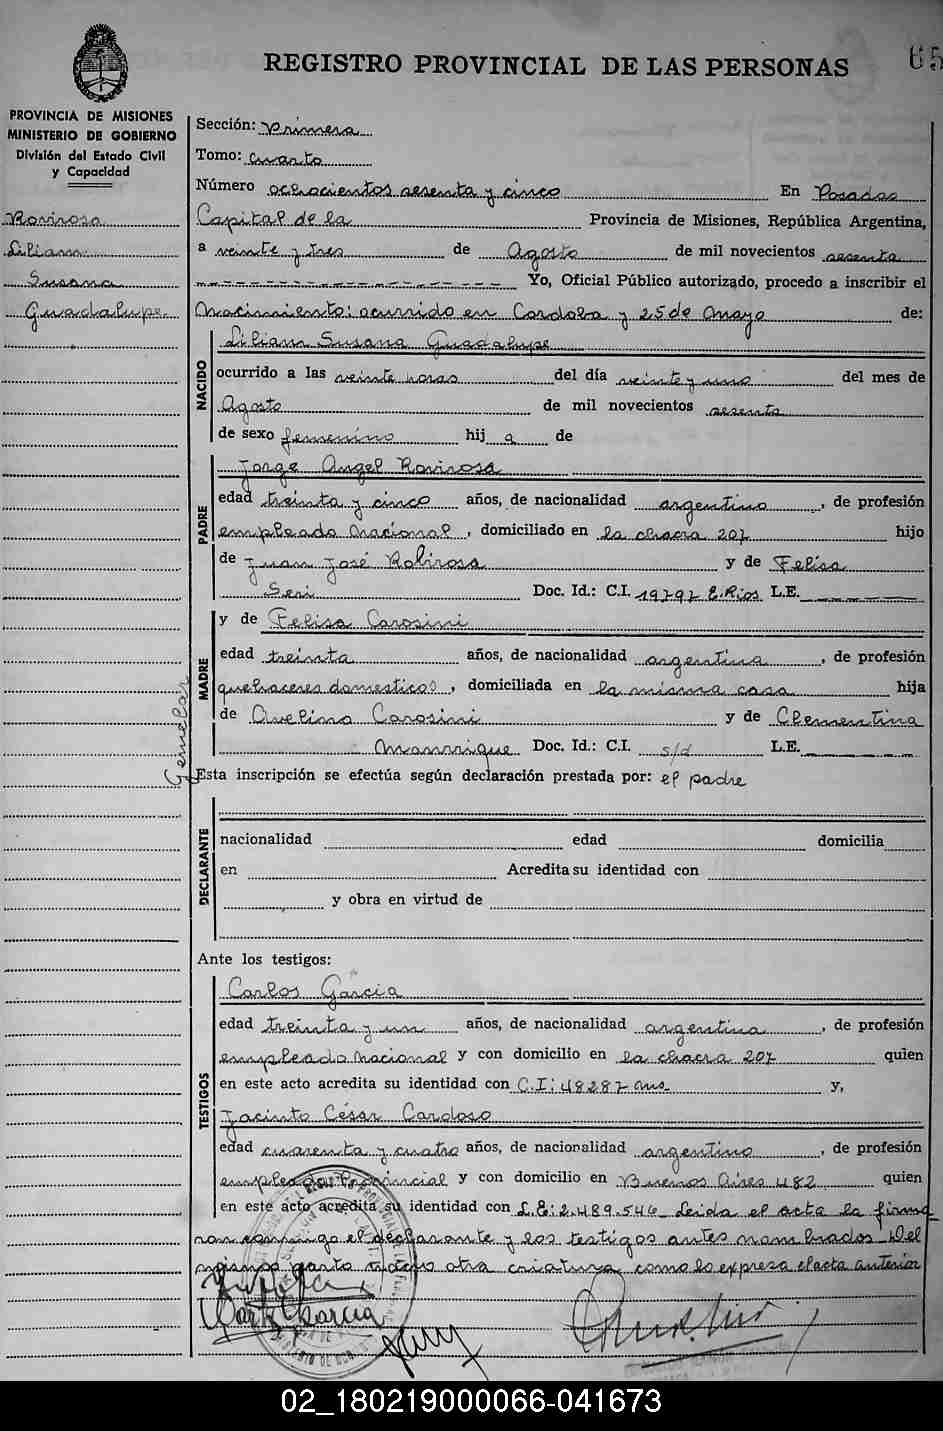 REGISTRO PROVINCIAL DE LAS PERSONAS
65
PROVINCIA DE MISIONES
MINISTERIO DE GOBIERNO
División del Estado Civil
y Capacidad
Rovirosa
Liliam
Susana
Guadalupe
Gemelar
Sección: Primera
Tomo: Cuarto
Número ochocientos sesenta y cinco En Posadas
Capital de la Provincia de Misiones, República Argentina,
a veinte y tres de Agosto de mil novecientos sesenta
Yo, Oficial Público autorizado, procedo a inscribir el
Nacimiento: ocurrido en Cordoba y 25 de Mayo de:
NACIDO
Liliam Susana Guadalupe
ocurrido a las veinte horas del día veinte y uno del mes de
Agosto de mil novecientos sesenta
de sexo femenino hij a de
PADRE
Jorge Angel Rovirosa
edad treinta y cinco años, de nacionalidad argentino, de profesión
empleado Nacional, domiciliado en la chacra 207 hijo
de Juan José Robirosa y de Felisa
Seri Doc. Id.: C.I. 19797 E. Rios L.E.
MADRE
y de Felisa Carosini
edad treinta años, de nacionalidad argentina, de profesión
quehaceres domesticos, domiciliada en la misma casa hija
de Avelino Carosini y de Clementina
Manrrique Doc. Id.: C.I. s/d L.E.
Esta inscripción se efectúa según declaración prestada por: el padre
DECLARANTE
nacionalidad edad domicilia
en Acredita su identidad con
y obra en virtud de
Ante los testigos:
TESTIGOS
Carlos García
edad treinta y un años, de nacionalidad argentina, de profesión
empleado Nacional y con domicilio en la chacra 207 quien
en este acto acredita su identidad con C.I: 48287 mns y,
Jacinto César Cardoso
edad cuarenta y cuatro años, de nacionalidad argentino, de profesión
empleado Provincial y con domicilio en Buenos Aires 482 quien
en este acto acredita su identidad con L.E: 2.489.546_ Leida el acta la firma
ron conmigo el declarante y los testigos antes nombrados_ Del
mismo parto nacio otra criatura como lo expresa el acta anterior
02_180219000066-041673